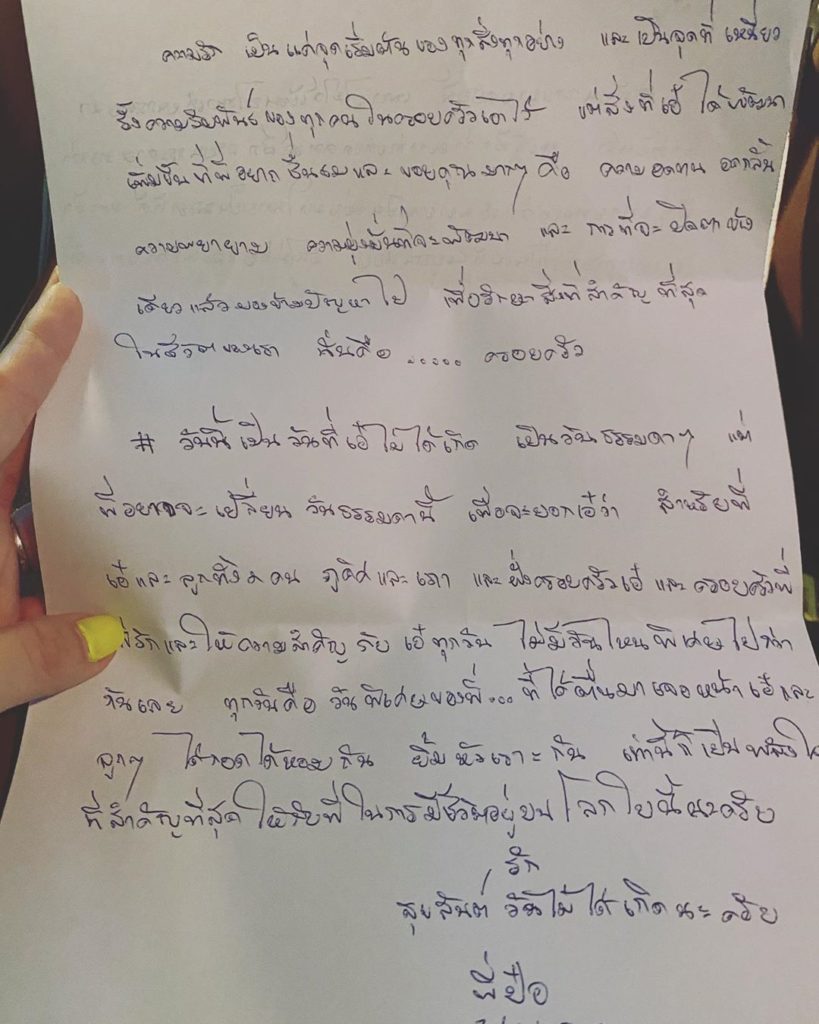 ความรัก เป็นแค่จุดเริ่มต้นของทุกสิ่งทุกอย่าง และเป็นจุดที่เหนี่ยว
รั้งความสัมพันธ์ของทุกคนในครอบครัวเอาไว้ แต่สิ่งที่เอ๋ได้พัฒนา
เพิ่มขึ้นที่พี่อยากชื่นชมและขอบคุณมากๆ คือ ความอดทน อดกลั้น
ความพยายาม ความมุ่งมั่นที่จะพัฒนา และ การที่จะปิดตาข้าง
เดียวแล้วมองข้ามปัญหาไป เพื่อรักษาสิ่งที่สำคัญที่สุด
ในชีวิตของเรา นั่นคือ ..... ครอบครัว
# วันนี้เป็นวันที่เอ๋ไม่ได้เกิด เป็นวันธรรมดาๆ แต่
พี่อยากจะเปลี่ยนวันธรรมดานี้ เพื่อจะบอกเอ๋ว่า สำหรับพี่
เอ๋และลูกทั้ง 2 คน ภูคิศและเภา และฝั่งครอบครัวเอ๋และครอบครัวพี่
พี่รักและให้ความสำคัญกับเอ๋ทุกวัน ไม่มีวันไหนพิเศษไปกว่า
กันเลย ทุกวันคือวันพิเศษของพี่... ที่ได้ตื่นมาเจอหน้าเอ๋และ
ลูกๆ ได้กอดได้หอมกัน ยิ้มหัวเราะกัน เท่านี้ก็เป็นพลังใจ
ที่สำคัญที่สุดให้กับพี่ในการมีชีวิตอยู่บนโลกใบนี้นะครับ
รัก
สุขสันต์วันไม่ได้เกิดนะครับ
พี่ป๋อ